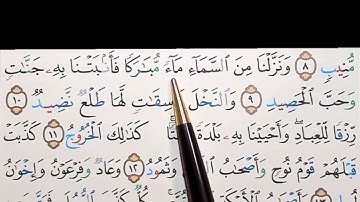 مُّنِيبٍ ٨ وَنَزَّلْنَا مِنَ ٱلسَّمَآءِ مَآءً مُّبَٰرَكًا فَأَنۢبَتْنَا بِهِۦ جَنَّٰتٍ
وَحَبَّ ٱلْحَصِيدِ ٩ وَٱلنَّخْلَ بَاسِقَٰتٍ لَّهَا طَلْعٌ نَّضِيدٌ ١٠
رِّزْقًا لِّلْعِبَادِ وَأَحْيَيْنَا بِهِۦ بَلْدَةً كَذَٰلِكَ ٱلْخُرُوجُ ١١ كَذَّبَتْ
قَبْلَهُمْ قَوْمُ نُوحٍ وَأَصْحَٰبُ وَثَمُودُ ١٢ وَعَادٌ وَفِرْعَوْنُ وَإِخْوَٰنُ